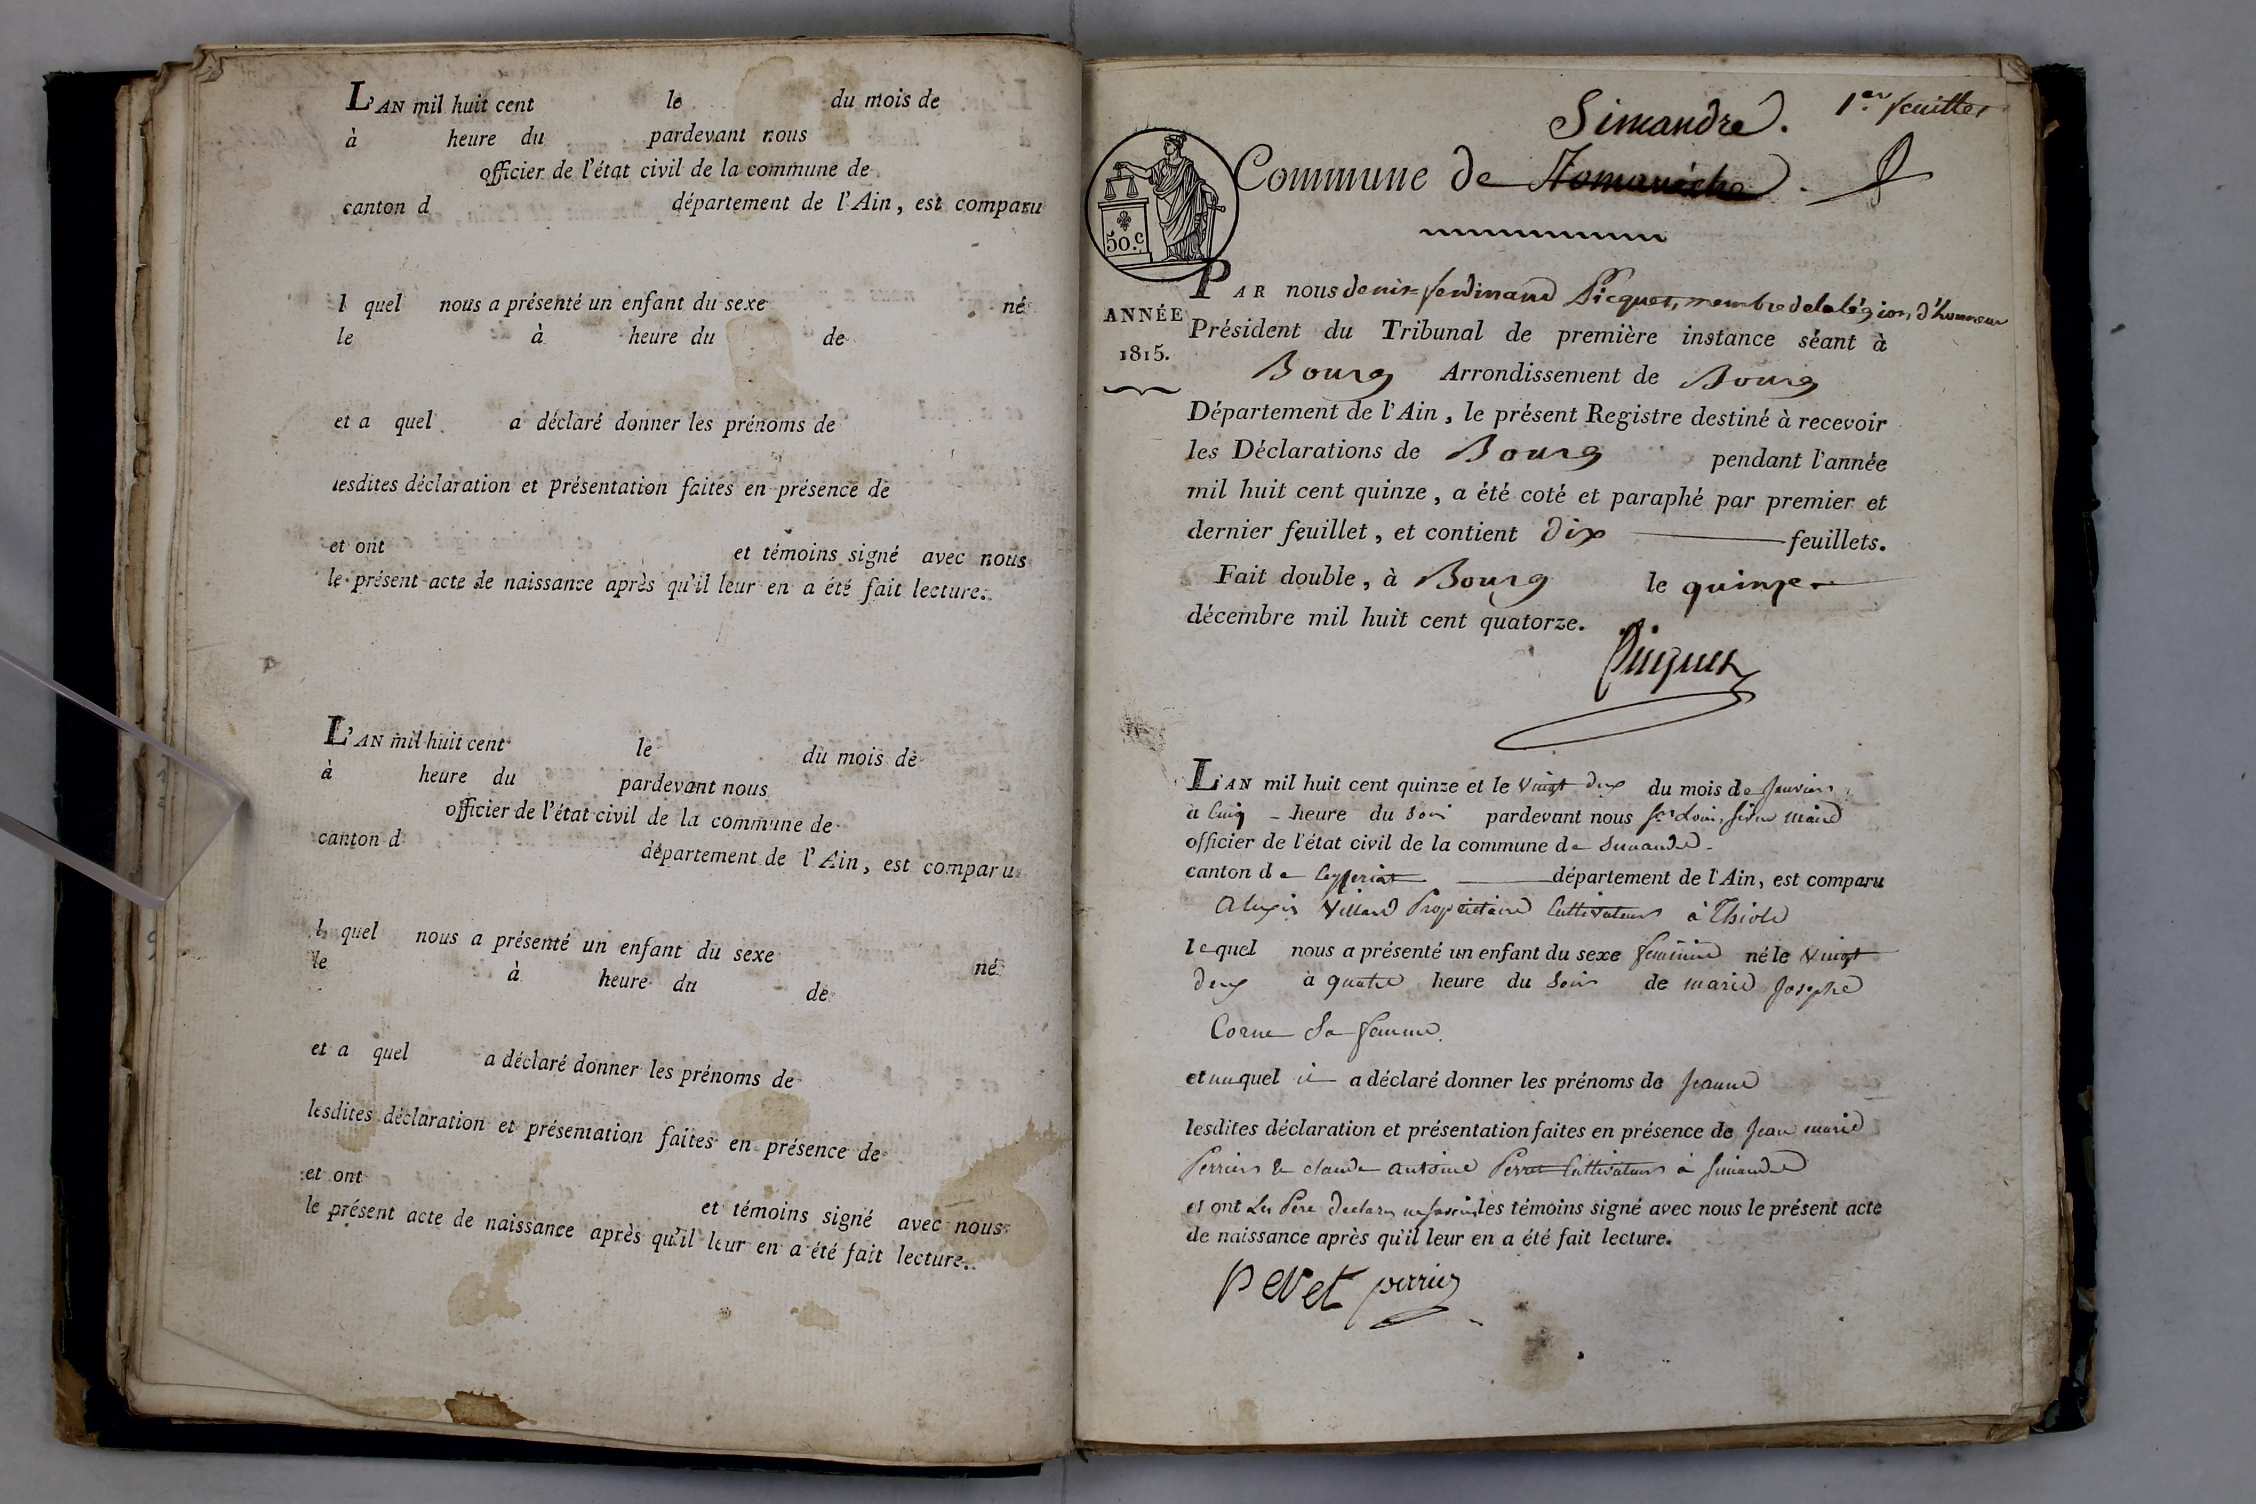 L'AN mil huit cent le du mois de
à heure du pardevant nous
officier de l'état civil de la commune de
canton d département de l'Ain, est comparu
l quel nous a présenté un enfant du sexe né
le à heure du de
et a quel a déclaré donner les prénoms de
lesdites déclaration et présentation faites en présence de
et ont et témoins signé avec nous
le présent acte de naissance après qu'il leur en a été fait lecture.
L'AN mil huit cent le du mois de
à heure du pardevant nous
officier de l'état civil de la commune de
canton d département de l'Ain, est comparu
l quel nous a présenté un enfant du sexe né
le à heure du de
et a quel a déclaré donner les prénoms de
lesdites déclaration et présentation faites en présence de
et ont et témoins signé avec nous
le présent acte de naissance après qu'il leur en a été fait lecture.
1.er feuillet
Simandre.
Commune de
50.c
ANNÉE
1815.
PAR nous denis=ferdinand Picquet, membre de la légion d'honneur
Président du Tribunal de première instance séant à
Bourg Arrondissement de Bourg
Département de l'Ain, le présent Registre destiné à recevoir
les Déclarations de Bourg pendant l'année
mil huit cent quinze, a été coté et paraphé par premier et
dernier feuillet, et contient dix feuillets.
Fait double, à Bourg le quinze
décembre mil huit cent quatorze.
Picquet
L'AN mil huit cent quinze et le vingt deux du mois de Janvier
à cinq heure du soir pardevant nous Louis maire
officier de l'état civil de la commune de Simandre
canton de Ceyzeriat département de l'Ain, est comparu
Alexis Villard Propriétaire Cultivateur à Thiole
lequel nous a présenté un enfant du sexe feminin né le vingt
deux à quatre heure du soir de marie Josephe
Corne Sa femme
et auquel il a déclaré donner les prénoms de Jeanne
lesdites déclaration et présentation faites en présence de Jean marie
Perrier & claude antoine Perret Cultivateurs à Simandre
et ont Le Père declaré ne savoir les témoins signé avec nous le présent acte
de naissance après qu'il leur en a été fait lecture.
Pevet perrier